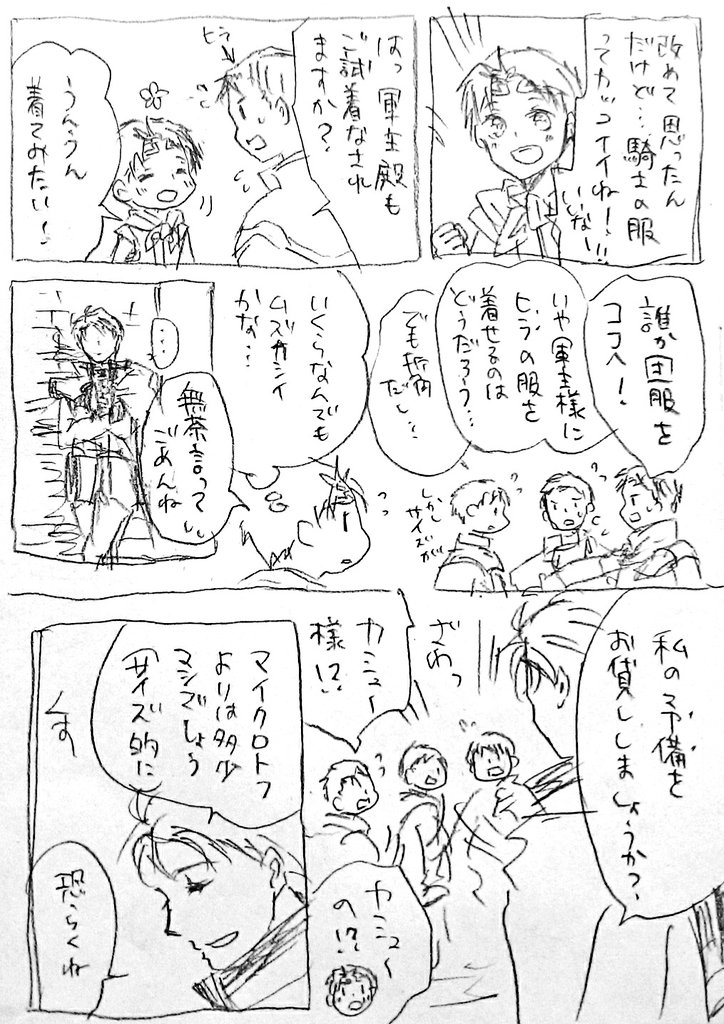 改めて思ったん
だけど…騎士の服
ってカッコイイね！！
いいな
ヒラ
はっ軍主殿も
ご試着なされ
ますか？
うんうん
着てみたい！
誰か団服を
ココへ！
いや軍主様に
ヒラの服を
着せるのは
どうだろう…
でも折角
だし…
しかし
サイズが
いくらなんでも
ムズカシイ
かな…
無茶言って
ごめんね
…
私の予備を
お貸ししましょうか？
ざわっ
カミュー
様！？
カミュー
の！？
マイクロトフ
よりは多少
マシでしょう
サイズ的に
くす
恐らくね